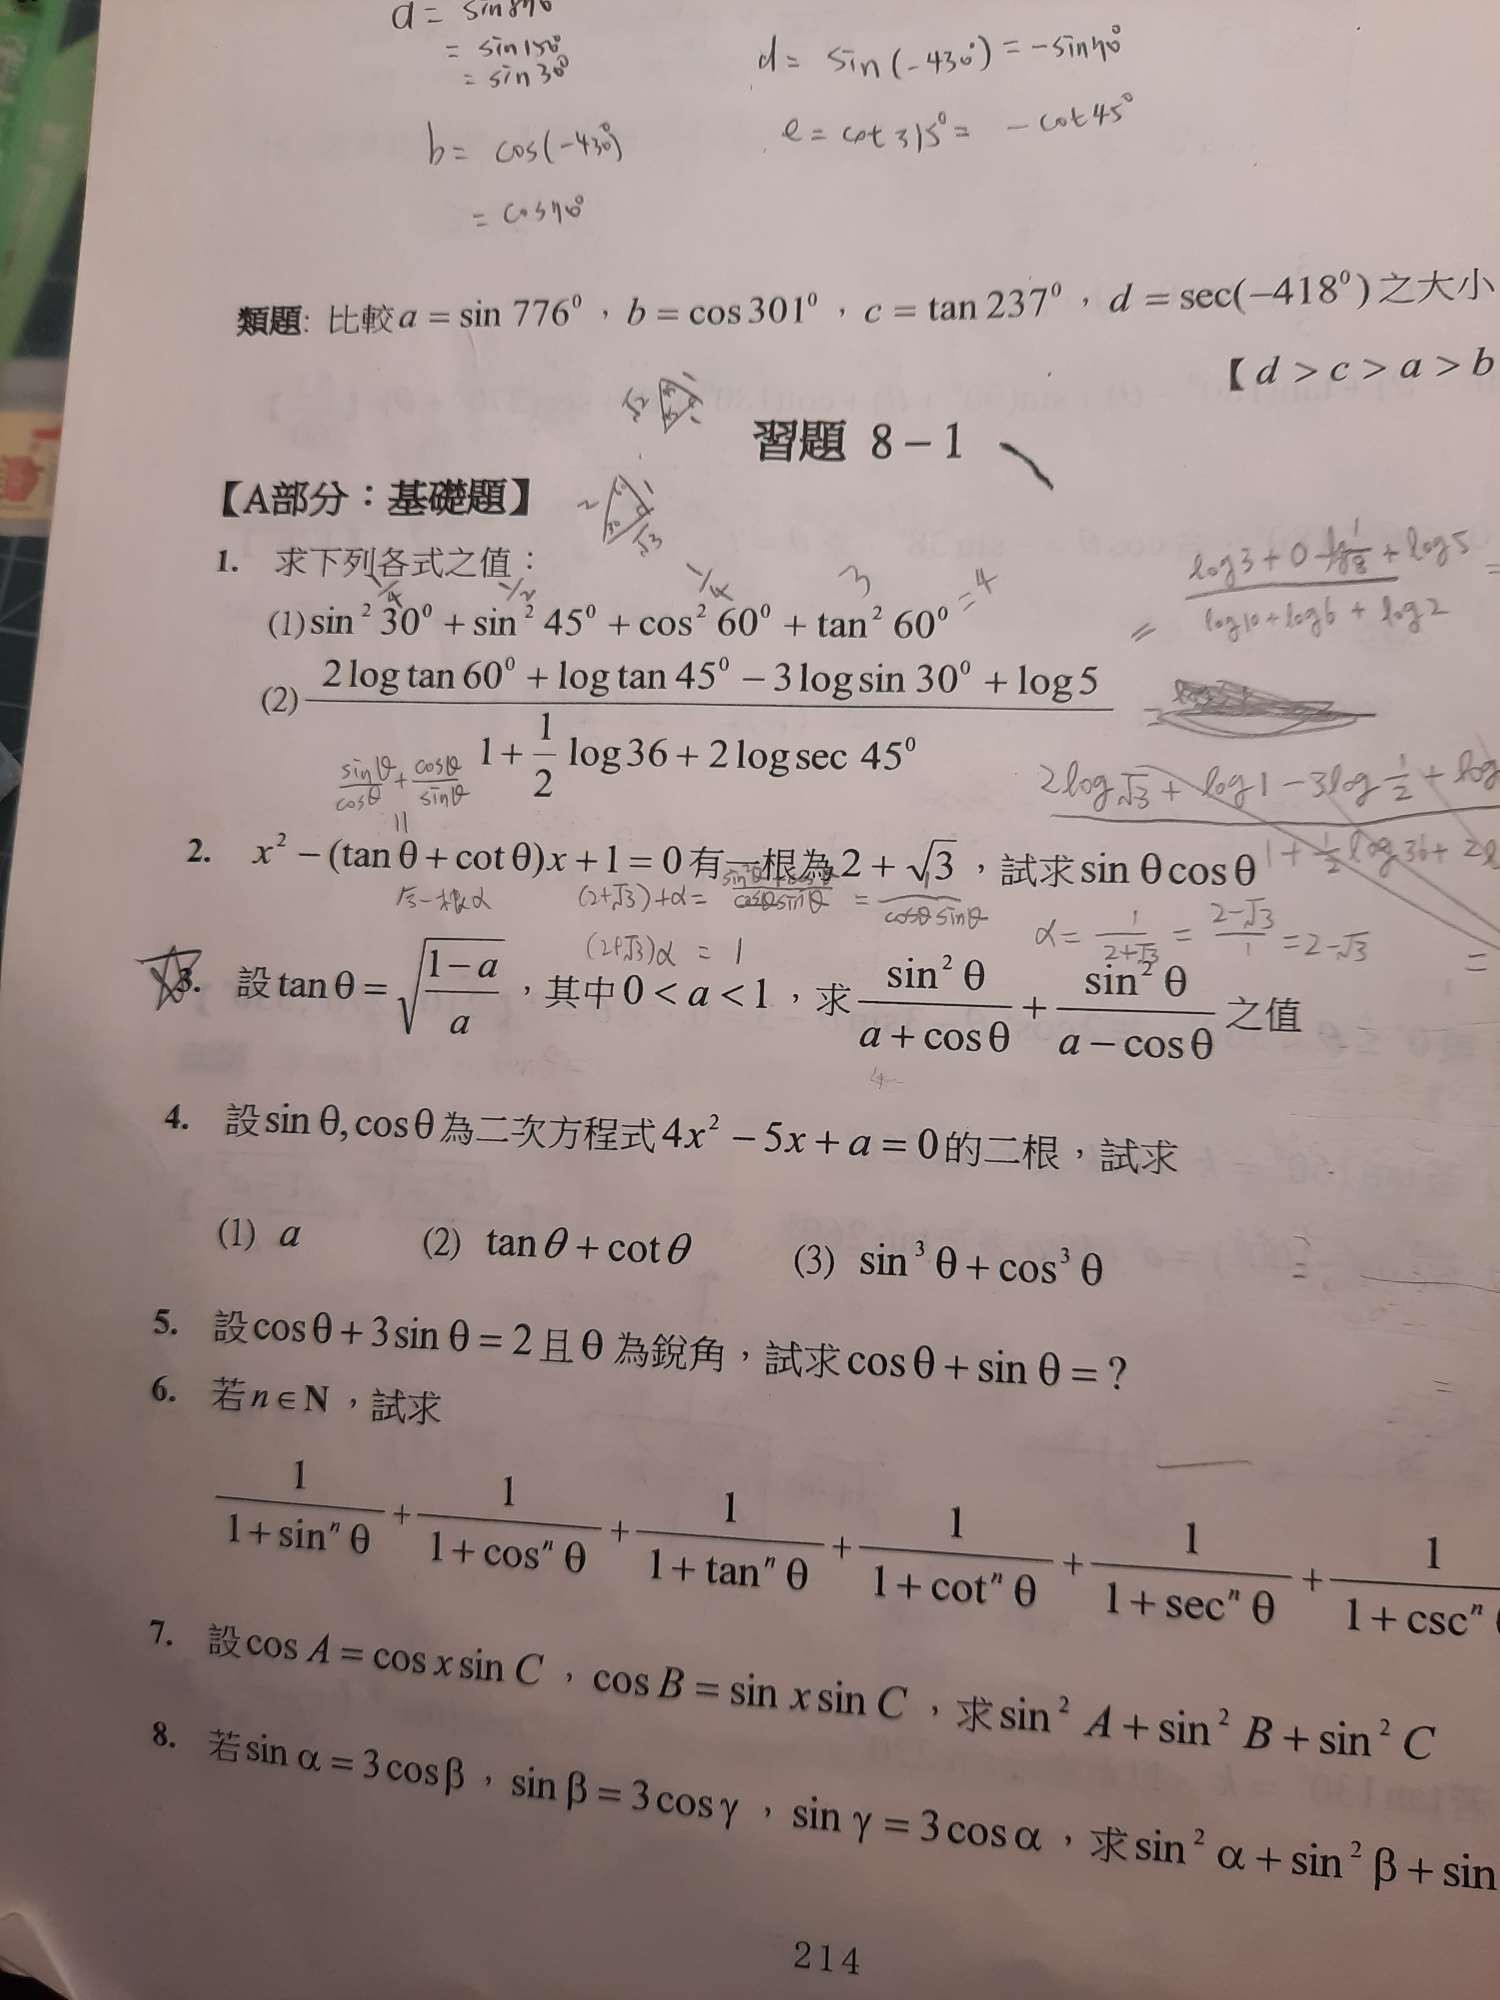 a = sin870°
= sin150°
= sin30°
b = cos(-430°)
= cos70°
d = sin(-430°) = -sin70°
e = cot315° = -cot45°
類題: 比較 a = sin 776⁰，b = cos 301⁰，c = tan 237⁰，d = sec(−418⁰) 之大小
【d > c > a > b
√2 1 1
習題 8－1
【A部分：基礎題】
2 1 √3 30
1. 求下列各式之值：
1/4 1/2 1/4 3
(1) sin² 30⁰ + sin² 45⁰ + cos² 60⁰ + tan² 60⁰ = 4
= (log3+0-log1/8+log5)/(log10+log6+log2) =
(2) (2 log tan 60⁰ + log tan 45⁰ − 3 log sin 30⁰ + log 5)/(1 + 1/2 log 36 + 2 log sec 45⁰)
(2log√3 + log1 - 3log1/2 + log)/(1+1/2log36+2l
sinθ/cosθ + cosθ/sinθ
||
2. x² − (tan θ + cot θ)x + 1 = 0 有一根為 2 + √3，試求 sin θ cos θ
另一根α (2+√3)+α = = 1/cosθsinθ
(2+√3)α = 1
α = 1/(2+√3) = (2-√3)/1 = 2-√3
3. 設 tan θ = √((1−a)/a)，其中 0 < a < 1，求 sin² θ/(a + cos θ) + sin² θ/(a − cos θ) 之值
4. 設 sin θ, cos θ 為二次方程式 4x² − 5x + a = 0 的二根，試求
(1) a (2) tan θ + cot θ (3) sin³ θ + cos³ θ
5. 設 cos θ + 3 sin θ = 2 且 θ 為銳角，試求 cos θ + sin θ = ?
6. 若 n ∈ N，試求
1/(1 + sinⁿ θ) + 1/(1 + cosⁿ θ) + 1/(1 + tanⁿ θ) + 1/(1 + cotⁿ θ) + 1/(1 + secⁿ θ) + 1/(1 + cscⁿ
7. 設 cos A = cos x sin C，cos B = sin x sin C，求 sin² A + sin² B + sin² C
8. 若 sin α = 3 cos β，sin β = 3 cos γ，sin γ = 3 cos α，求 sin² α + sin² β + sin
214